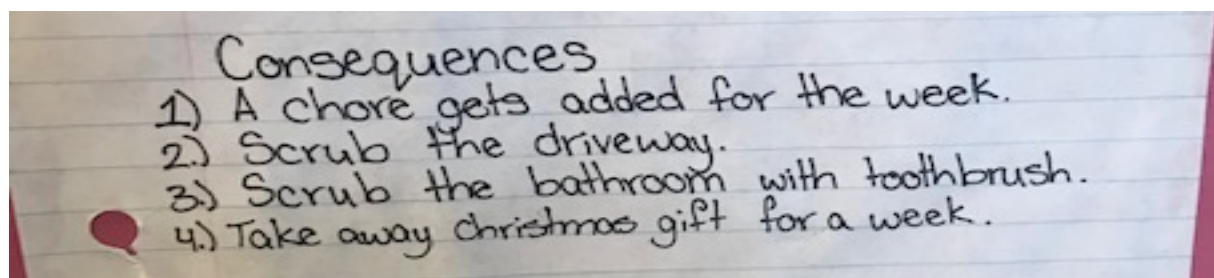 Consequences
1) A chore gets added for the week.
2.) Scrub the driveway.
3.) Scrub the bathroom with toothbrush.
4.) Take away christmas gift for a week.